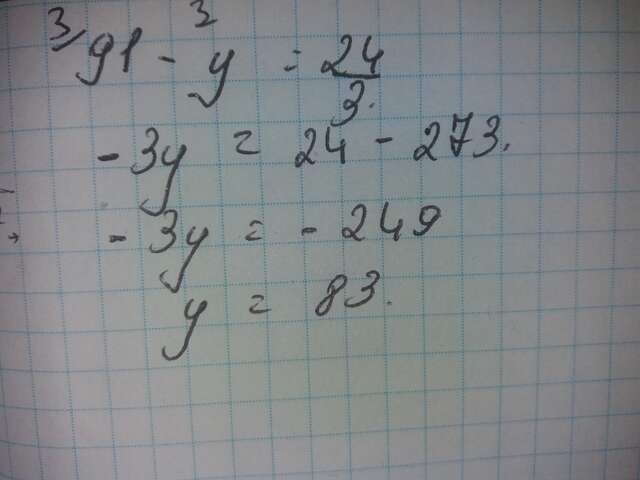 3/91 - 3 y = 24/3.
-3y = 24 - 273.
-3y = -249
y = 83.